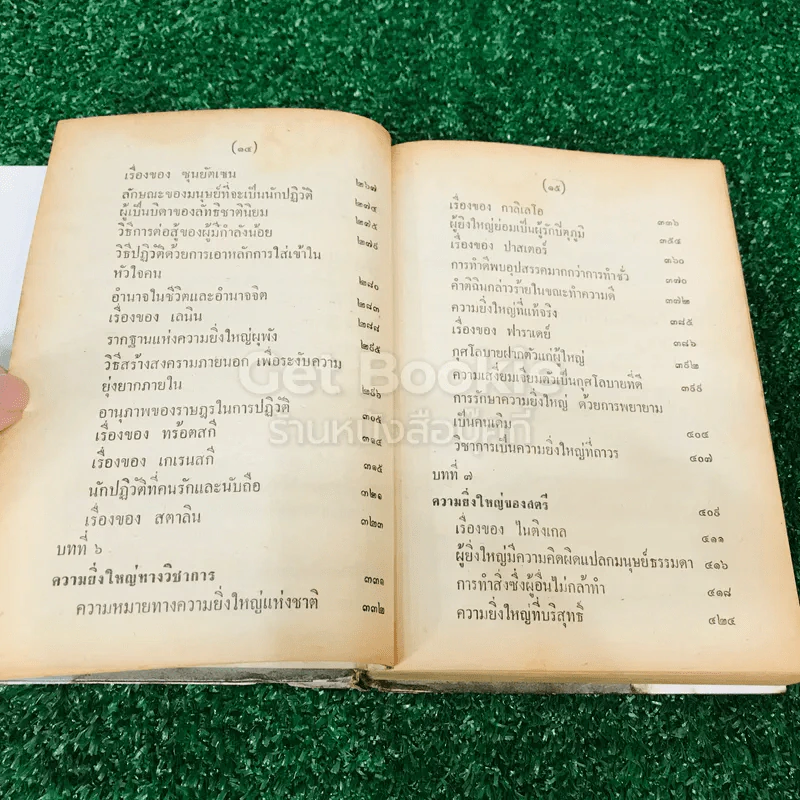 (๑๔)
เรื่องของ ซุนยัตเซน ๒๖๗
ลักษณะของมนุษย์ที่จะเป็นนักปฏิวัติ ๒๗๔
ผู้เป็นบิดาของลัทธิชาตินิยม ๒๗๕
วิธีการต่อสู้ของผู้มีกำลังน้อย ๒๗๘
วิธีปฏิวัติด้วยการเอาหลักการใส่เข้าใน
หัวใจคน ๒๘๐
อำนาจในชีวิตและอำนาจจิต ๒๘๓
เรื่องของ เลนิน ๒๘๘
รากฐานแห่งความยิ่งใหญ่ผุพัง ๒๙๕
วิธีสร้างสงครามภายนอก เพื่อระงับความ
ยุ่งยากภายใน ๒๙๖
อานุภาพของราษฎรในการปฏิวัติ ๓๑๕
เรื่องของ ทร้อตสกี้ ๓๑๔
เรื่องของ เกเรนสกี ๓๑๕
นักปฏิวัติที่คนรักและนับถือ ๓๒๑
เรื่องของ สตาลิน ๓๒๓
บทที่ ๖
ความยิ่งใหญ่ทางวิชาการ ๓๓๑
ความหมายทางความยิ่งใหญ่แห่งชาติ ๓๓๒
(๑๕)
เรื่องของ กาลิเลโอ ๓๓๖
ผู้ยิ่งใหญ่ย่อมเป็นผู้รักปิตุภูมิ ๓๕๔
เรื่องของ ปาสเตอร์ ๓๖๐
การทำดีพบอุปสรรคมากกว่าการทำชั่ว ๓๗๐
คำติฉินกล่าวร้ายในขณะทำความดี ๓๗๒
ความยิ่งใหญ่ที่แท้จริง ๓๘๕
เรื่องของ ฟาราเดย์ ๓๘๖
กุศโลบายฝากตัวแก่ผู้ใหญ่ ๓๙๒
ความเสงี่ยมเจียมตัวเป็นกุศโลบายที่ดี ๓๙๙
การรักษาความยิ่งใหญ่ ด้วยการพยายาม
เป็นคนเดิม ๔๐๔
วิชาการเป็นความยิ่งใหญ่ที่ถาวร ๔๐๗
บทที่ ๗
ความยิ่งใหญ่ของสตรี ๔๐๙
เรื่องของ ไนติงเกล ๔๑๑
ผู้ยิ่งใหญ่มีความคิดผิดแปลกมนุษย์ธรรมดา ๔๑๖
การทำสิ่งซึ่งผู้อื่นไม่กล้าทำ ๔๑๘
ความยิ่งใหญ่ที่บริสุทธิ์ ๔๒๔
Get Bookie
ร้านหนังสือบุ๊คกี้